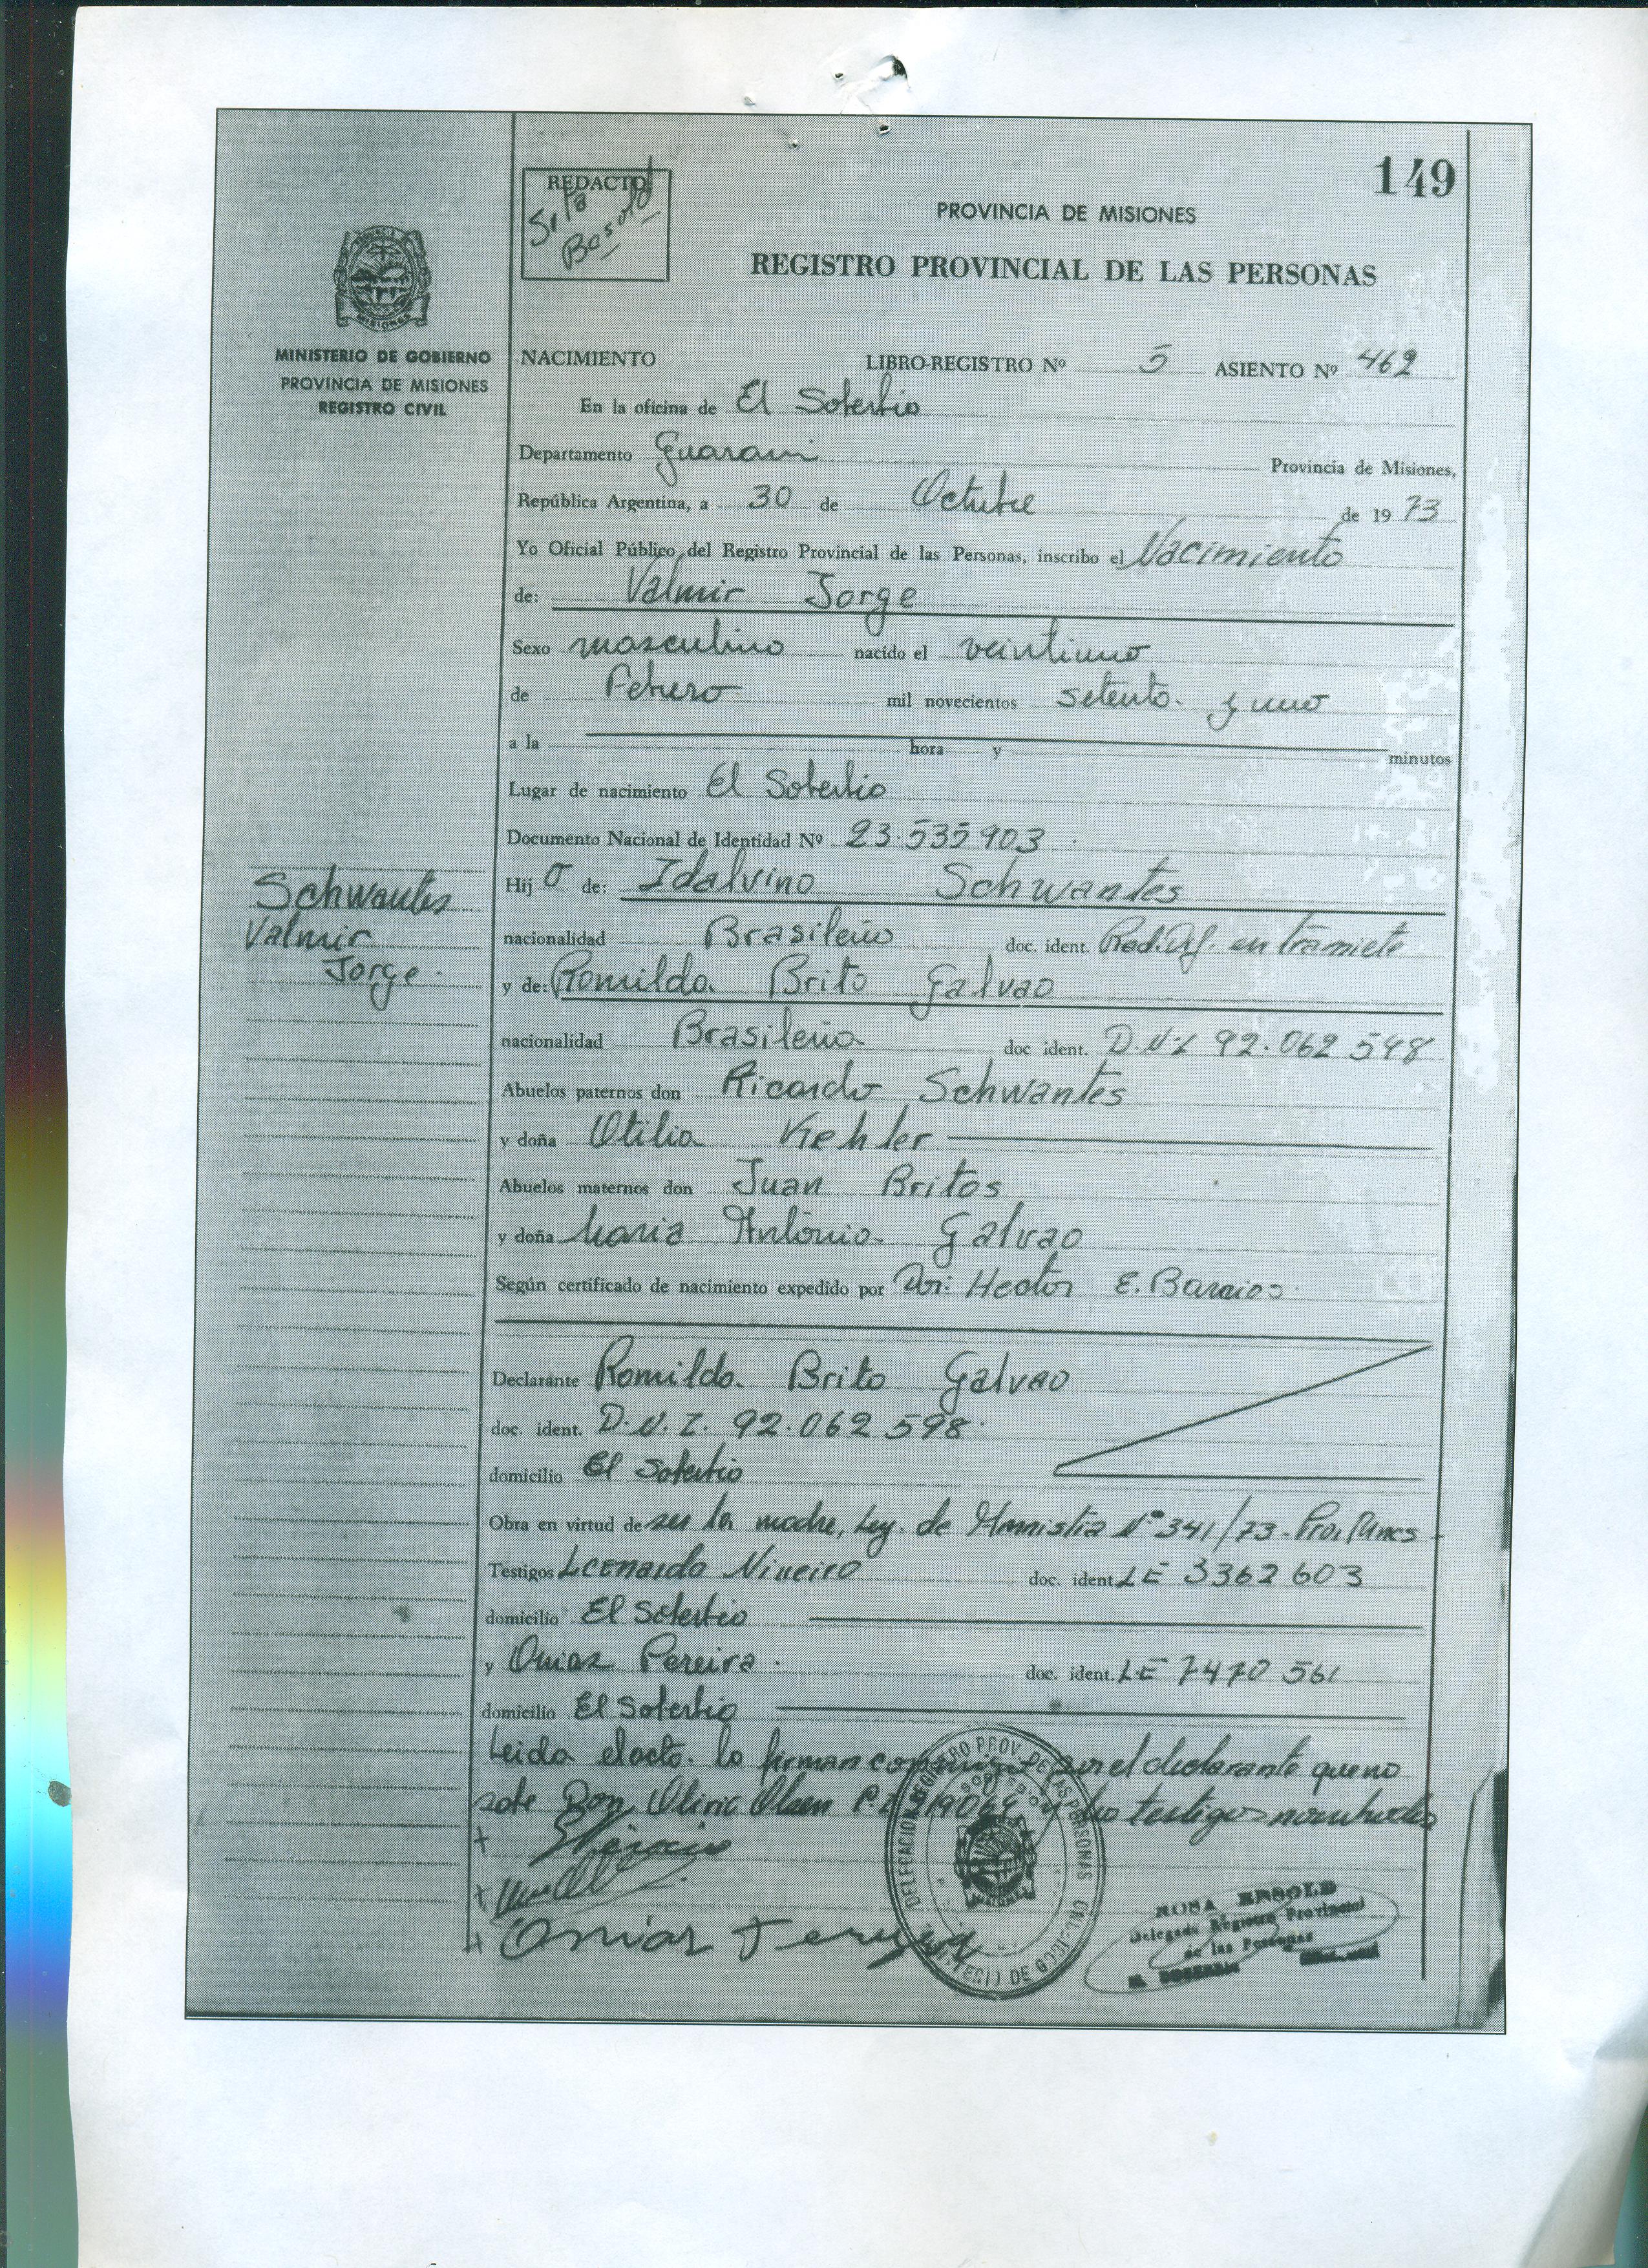 149
REDACTO
Srta
PROVINCIA DE MISIONES
REGISTRO PROVINCIAL DE LAS PERSONAS
MISIONES
MINISTERIO DE GOBIERNO
PROVINCIA DE MISIONES
REGISTRO CIVIL
NACIMIENTO LIBRO-REGISTRO Nº 5 ASIENTO Nº 462
En la oficina de El Soberbio
Departamento Guarani Provincia de Misiones,
República Argentina, a 30 de Octubre de 1973
Yo Oficial Público del Registro Provincial de las Personas, inscribo el Nacimiento
de: Valmir Jorge
Sexo masculino nacido el veintiuno
de Febrero mil novecientos setenta y uno
a la hora y minutos
Lugar de nacimiento El Soberbio
Documento Nacional de Identidad Nº 23.535903
Schwantes
Valmir
Jorge.
Hijo de: Idalvino Schwantes
nacionalidad Brasileño doc. ident. Rad. en tramiete
y de: Romilda Brito Galvao
nacionalidad Brasileña doc ident. D.N.I 92.062598
Abuelos paternos don Ricardo Schwantes
y doña Otilia Kehler
Abuelos maternos don Juan Britos
y doña Maria Antonia Galvao
Según certificado de nacimiento expedido por Dor: Hector E. Barrios
Declarante Romilda Brito Galvao
doc. ident. D.N.I. 92.062598.
domicilio El Soberbio
Obra en virtud de ser la madre, Ley. de Amnistia Nº 341/73-
Testigos Leonardo doc. ident. LE 3362603
domicilio El Soberbio
y Omar Pereira. doc. ident. LE 7470561
domicilio El Soberbio
Leida el acta. la firman conmigo por el declarante que no
sabe Don y los testigos nombrados
DELEGACION REGISTRO PROV. DE LAS PERSONAS
MINISTERIO DE GOBIERNO
ROSA
Delegada Registro Provincial
de las Personas